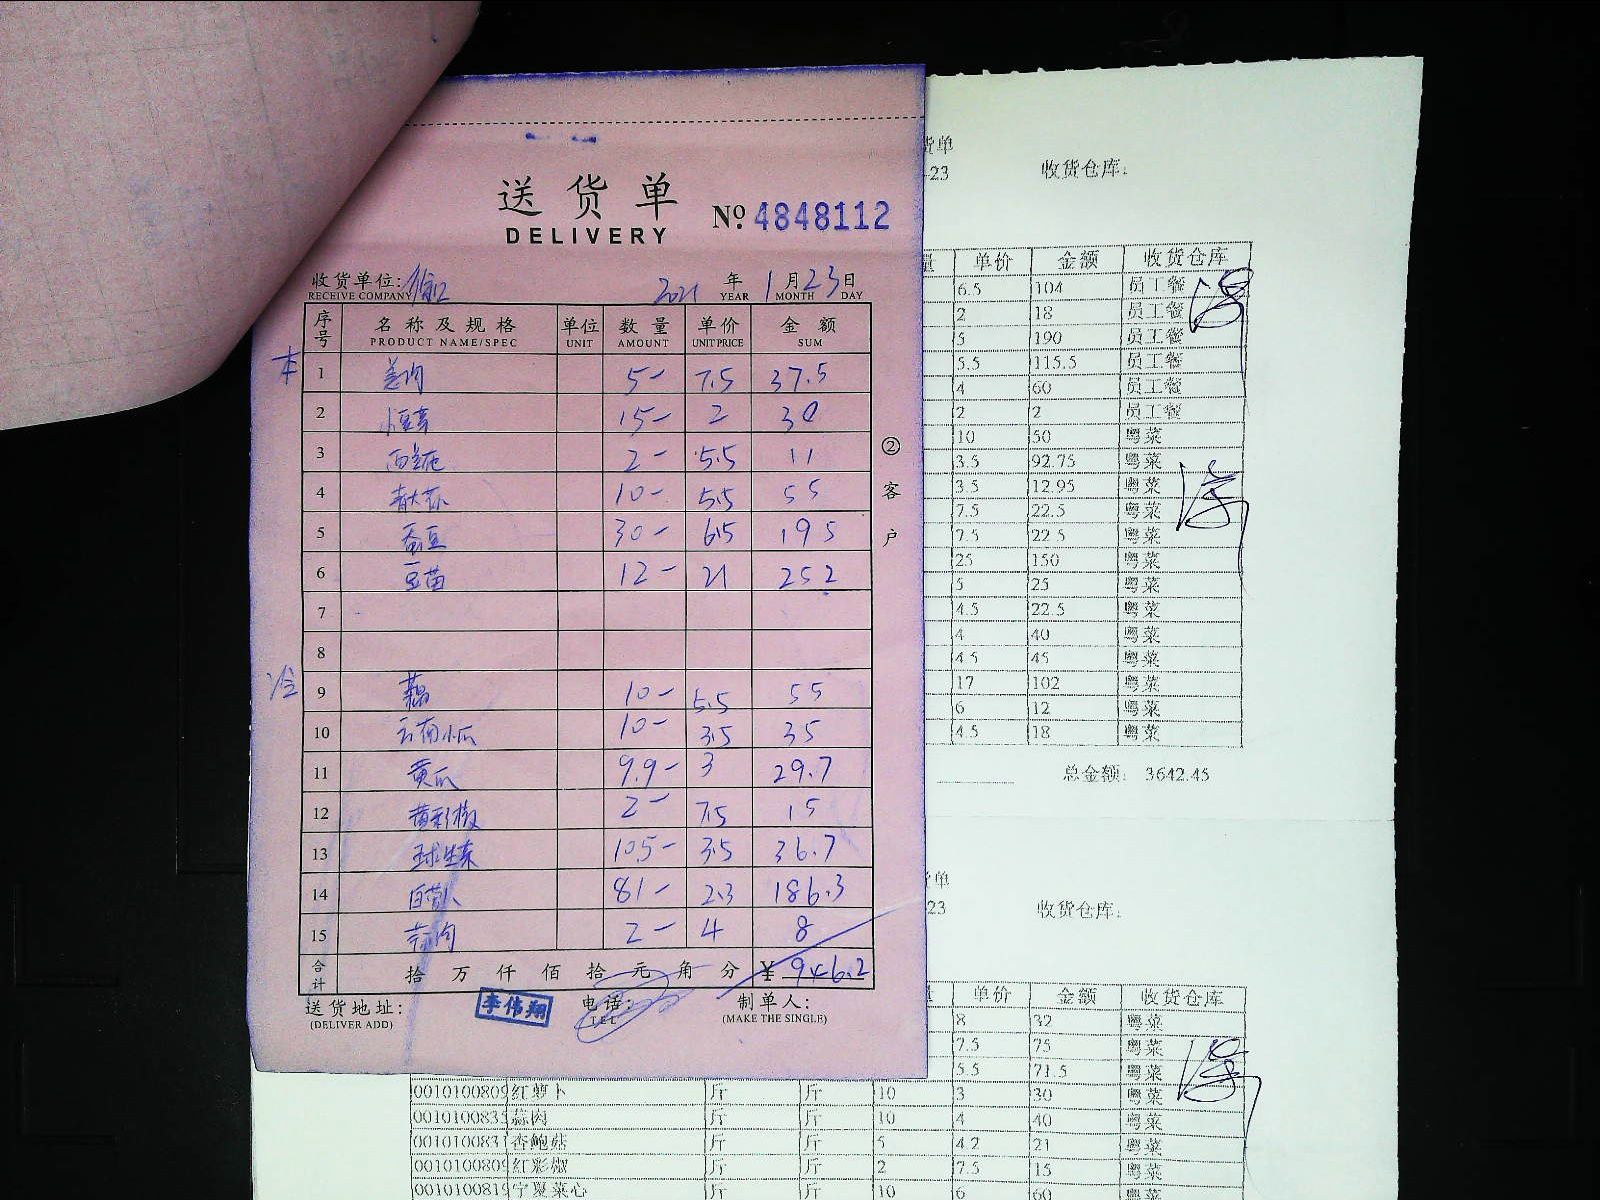 送货单
DELIVERY
№ 4848112
收货单位:
RECEIVE COMPANY
2021 年 1 月 23 日
YEAR MONTH DAY
序号 名称及规格 单位 数量 单价 金额
PRODUCT NAME/SPEC UNIT AMOUNT UNIT PRICE SUM
本 1 姜肉 5- 7.5 37.5
2 小豆芽 15- 2 30
3 西兰花 2- 5.5 11
4 10- 5.5 55
5 蚕豆 30- 6.5 195
6 豆苗 12- 21 252
7
8
冷 9 藕 10- 5.5 55
10 云南小瓜 10- 3.5 35
11 黄瓜 9.9- 3 29.7
12 黄彩椒 2- 7.5 15
13 球生菜 10.5- 3.5 36.7
14 81- 2.3 186.3
15 蒜肉 2- 4 8
合计 拾 万 仟 佰 拾 元 角 分 ¥ 946.2
送货地址:
(DELIVER ADD)
李伟翔
电话:
TEL
制单人:
(MAKE THE SINGLE)
②客户
货单
-23 收货仓库:
量 单价 金额 收货仓库
6.5 104 员工餐
2 18 员工餐
5 190 员工餐
5.5 115.5 员工餐
4 60 员工餐
2 2 员工餐
10 50 粤菜
3.5 92.75 粤菜
3.5 12.95 粤菜
7.5 22.5 粤菜
7.5 22.5 粤菜
25 150 粤菜
5 25 粤菜
4.5 22.5 粤菜
4 40 粤菜
4.5 45 粤菜
17 102 粤菜
6 12 粤菜
4.5 18 粤菜
总金额: 3642.45
货单
23 收货仓库:
量 单价 金额 收货仓库
8 32 粤菜
7.5 75 粤菜
5.5 71.5 粤菜
0010100809 红萝卜 斤 斤 10 3 30 粤菜
001010083 蒜肉 斤 斤 10 4 40 粤菜
001010083 杏鲍菇 斤 斤 5 4.2 21 粤菜
001010080 红彩椒 斤 斤 2 7.5 15 粤菜
001010081 宁夏菜心 斤 斤 10 6 60 粤菜